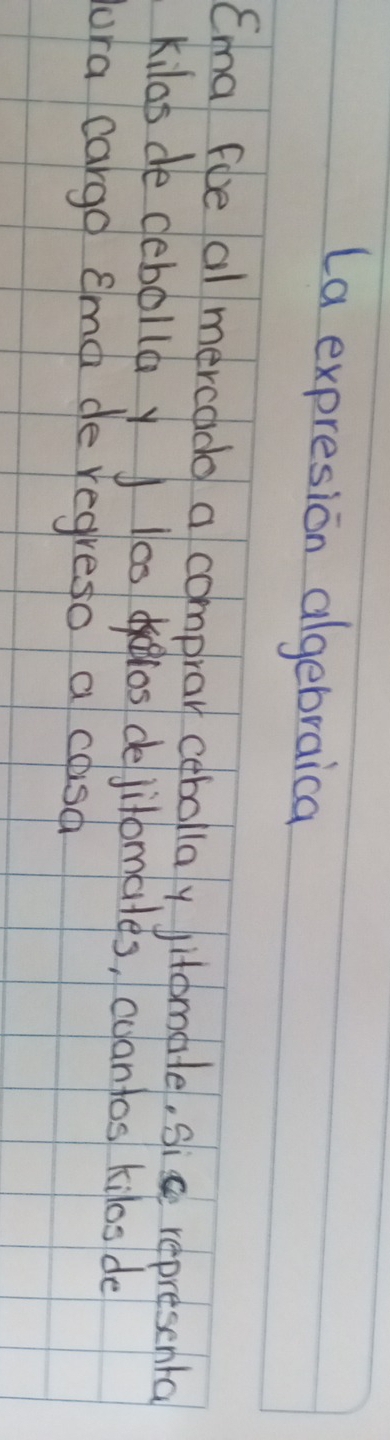 La expresión algebraica
Ema fue al mercado a comprar cebolla y jitomate. Si c representa
kilos de cebolla y j los kilos de jitomates, cuantos kilos de
dura cargo Ema de regreso a casa